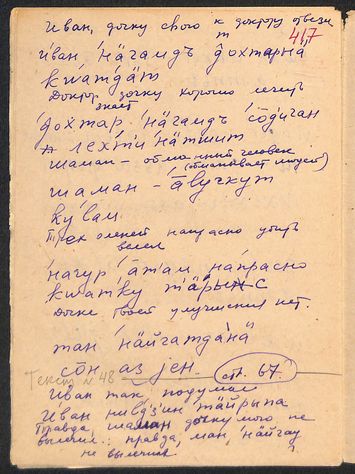 Иван, дочку свою к доктору отвези
417
иван на́гамдъ до́хтарнӓ
кwатдӓт
Доктор дочку хорошо лечить
знает
до́хтар на́гамдъ со̄дичан
шаман – обманный человек
(обманывает людей)
шаман – а̄вучкут
ку́лам
Трёх оленей напрасно убить
велел
на́чур а́там на́прасно
кwатку
Дочке твоей улучшения нет.
тан нӓйгатда́нӓ
со̄н аз jен.
стр. 67.
Текст № 48
Иван так подумал
Правда, шаман дочку мою не
вылечил: правда, ман нӓйгау
не вылечил